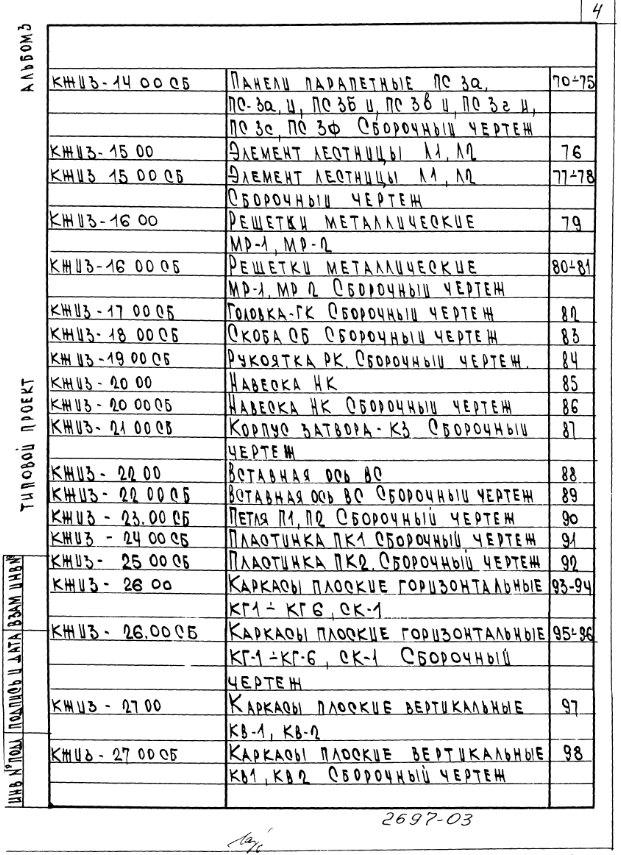 4
Альбом 3
КЖИЗ-14 00 СБ Панели парапетные ПС 3а, 70÷75
ПС-3а, и, ПС 3б и, ПС 3в и, ПС 3г и,
ПС 3с, ПС 3ф Сборочный чертеж
КЖИЗ-15 00 Элемент лестницы Л1, Л2 76
КЖИЗ 15 00 СБ Элемент лестницы Л1, Л2 77÷78
Сборочный чертеж
КЖИЗ-16 00 Решетки металлические 79
МР-1, МР-2
КЖИЗ-16 00 СБ Решетки металлические 80÷81
МР-1, МР 2 Сборочный чертеж
КЖИЗ-17 00 СБ Головка-ГК Сборочный чертеж 82
КЖИЗ-18 00 СБ Скоба СБ Сборочный чертеж 83
КЖИЗ-19 00 СБ Рукоятка РК. Сборочный чертеж. 84
КЖИЗ-20 00 Навеска НК 85
КЖИЗ-20 00 СБ Навеска НК Сборочный чертеж 86
КЖИЗ-21 00 СБ Корпус затвора-КЗ Сборочный 87
чертеж
КЖИЗ-22 00 Вставная ось ВС 88
КЖИЗ-22 00 СБ Вставная ось ВС Сборочный чертеж 89
КЖИЗ-23.00 СБ Петля П1, П2 Сборочный чертеж 90
КЖИЗ-24 00 СБ Пластинка ПК1 Сборочный чертеж 91
КЖИЗ-25 00 СБ Пластинка ПК2. Сборочный чертеж 92
КЖИЗ-26 00 Каркасы плоские горизонтальные 93-94
КГ1÷КГ6, СК-1
КЖИЗ-26.00 СБ Каркасы плоские горизонтальные 95÷96
КГ-1÷КГ-6, СК-1 Сборочный
чертеж
КЖИЗ-27 00 Каркасы плоские вертикальные 97
КВ-1, КВ-2
КЖИЗ-27 00 СБ Каркасы плоские вертикальные 98
КВ1, КВ2 Сборочный чертеж
Типовой проект
Инв № подл Подпись и дата Взам инв №
2697-03